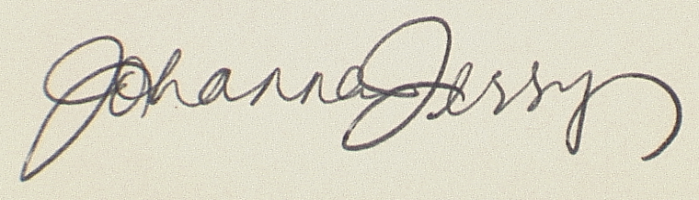 Johanna Jessy